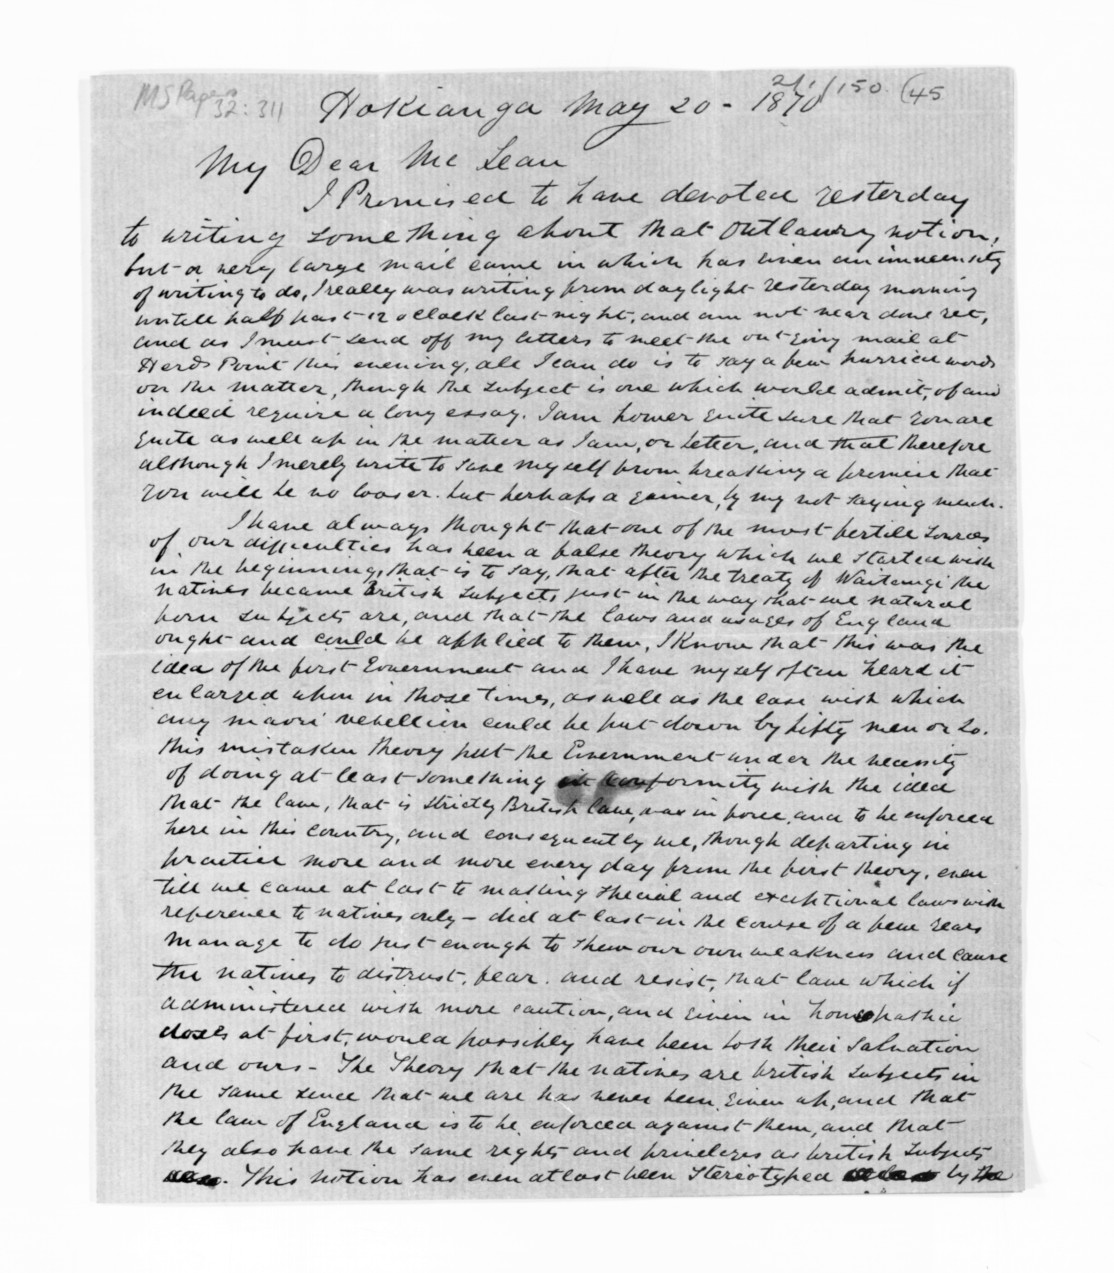 MS Papers 32:311
21/1/150. (45
Hokianga May 20 - 1870
My Dear Mc Lean
I Promised to have devoted yesterday
to writing something about that outlawry notion,
but a very large mail came in which has given an immensity
of writing to do, I really was writing from daylight yesterday morning
untill half past 12 oclock last night, and am not near done yet,
and as I must send off my letters to meet the out going mail at
Herds Point this evening, all I can do is to say a few hurried words
on the matter, though the subject is one which would admit, of and
indeed require a long essay. I am however quite sure that you are
quite as well up in the matter as I am, or better, and that therefore
although I merely write to save myself from breaking a promise that
you will be no looser. but perhaps a gainer, by my not saying much.
I have always thought that one of the most fertile sources
of our difficulties has been a false theory which we started with
in the beginning, that is to say, that after the treaty of Waitangi the
natives became British subjects just in the way that we natural
born subjects are, and that the laws and usages of England
ought and could be applied to them, I Know that this was the
idea of the first Government and I have myself often heard it
enlarged upon in those times, as well as the ease with which
any maori rebellion could be put down by fifty men or so.
this mistaken theory put the Government under the necessity
of doing at least something in conformity with the idea
that the law, that is strictly British law, was in force, and to be enforced
here in this country, and consequently we, though departing in
practice more and more every day from the first theory, even
till we came at last to making special and exceptional laws with
reference to natives only - did at last in the course of a few years
manage to do just enough to shew our own weakness and cause
the natives to distrust, fear. and resist, that law which if
administered with more caution, and given in homeopathic
doses at first, would possibly have been both their salvation
and ours - The Theory that the natives are british subjects in
the same sence that we are has never been given up, and that
the law of England is to be enforced against them, and that
they also have the same rights and privileges as british subjects
. This notion has even at last been stereotyped by the